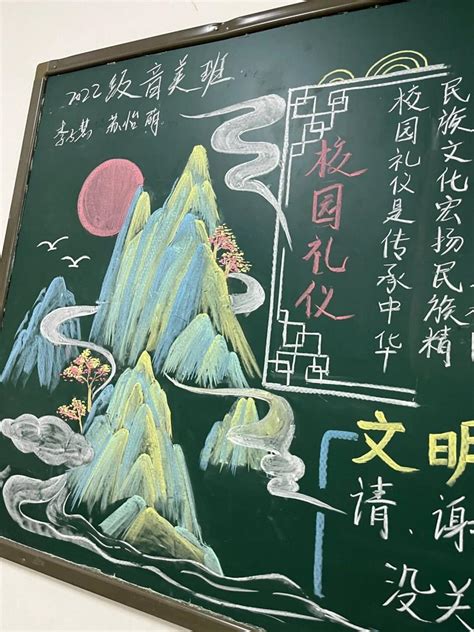 2022级音美班
苏怡萌
校园礼仪
校园礼仪是传承中华
民族文化宏扬民族精
文明
请、谢
没关